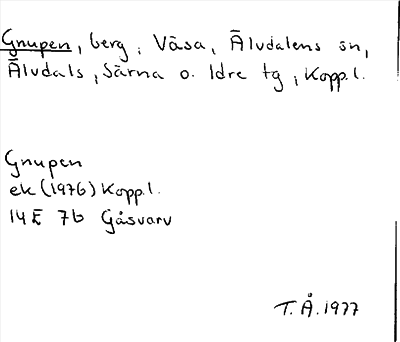 Gnupen, berg, Våsa, Älvdalens sn,
Älvdals, Särna o. Idre tg, Kopp.l.
Gnupen
ek (1976) Kopp.l.
14E 7b Gåsvarv
T.Å. 1977